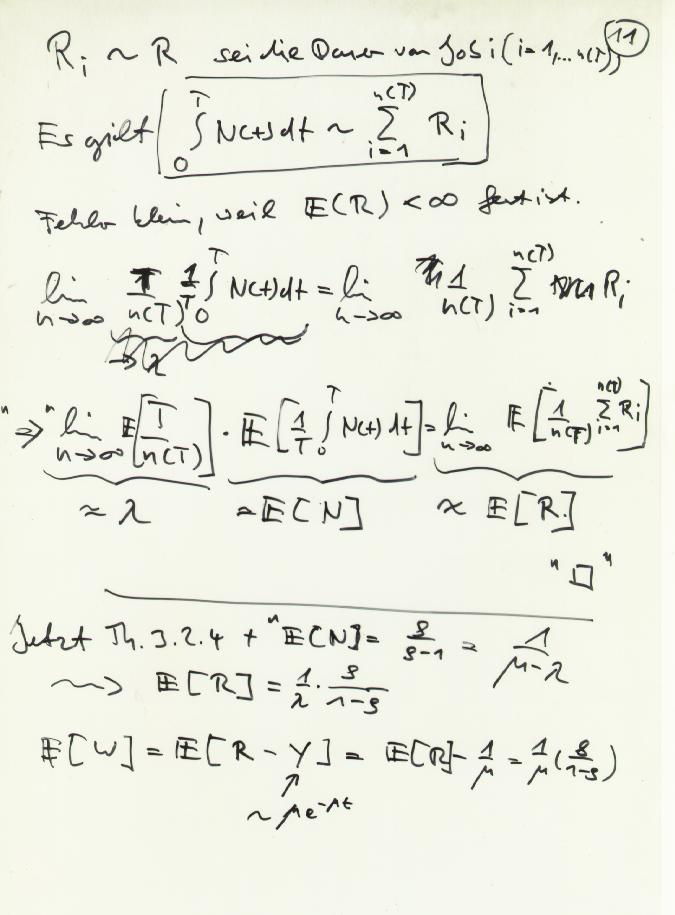 11
R_i ~ R sei die Dauer von Job i (i=1,...n(T))
Es gilt ∫_0^T N(t)dt ~ ∑_{i=1}^{n(T)} R_i
Fehler klein, weil 𝔼(R) < ∞ fast ist.
lim_{n→∞} T/n(T) 1/T ∫_0^T N(t)dt = lim_{n→∞} 1/n(T) ∑_{i=1}^{n(T)} R_i
→ λ
"⇒" lim_{n→∞} 𝔼[T/n(T)] · 𝔼[1/T ∫_0^T N(t)dt] = lim_{n→∞} 𝔼[1/n(T) ∑_{i=1}^{n(T)} R_i]
≈ λ ≈ 𝔼[N] ≈ 𝔼[R]
"□"
Jetzt Th. 3.2.4 + "𝔼[N] = ρ/(ρ-1) = 1/(μ-λ)
⇝ 𝔼[R] = 1/λ · ρ/(1-ρ)
𝔼[W] = 𝔼[R - Y] = 𝔼[R] - 1/μ = 1/μ (ρ/(1-ρ))
↑
~ μe^{-μt}